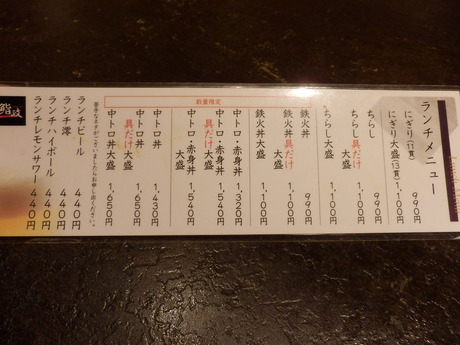 ランチメニュー
にぎり(11貫) 990円
にぎり大盛(13貫) 1,100円
ちらし 990円
ちらし具だけ大盛 1,100円
ちらし大盛 1,100円
数量限定
鉄火丼 990円
鉄火丼具だけ大盛 1,100円
鉄火丼大盛 1,100円
中トロ・赤身丼 1,320円
中トロ・赤身丼具だけ大盛 1,540円
中トロ・赤身丼大盛 1,540円
中トロ丼 1,430円
中トロ丼具だけ大盛 1,650円
中トロ丼大盛 1,650円
苦手なネタがございましたらお申し出ください。
ランチビール 440円
ランチ澪 440円
ランチハイボール 440円
ランチレモンサワー 440円